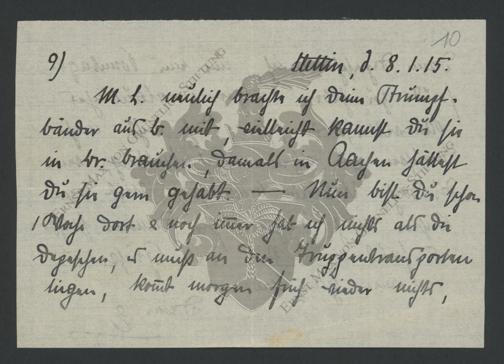 10
9) Stettin, d. 8.1.15.
M. L. neulich brachte ich Deine Strumpf-
bänder aus B. mit, vielleicht kannst Du sie
in Br. brauchen, damals in Aachen hättest
Du sie gern gehabt. — Nun bist Du schon
1 Woche dort & noch immer hab ich nichts als die
Depeschen, es muß an den Truppentransporten
liegen, kommt morgen früh wieder nichts,